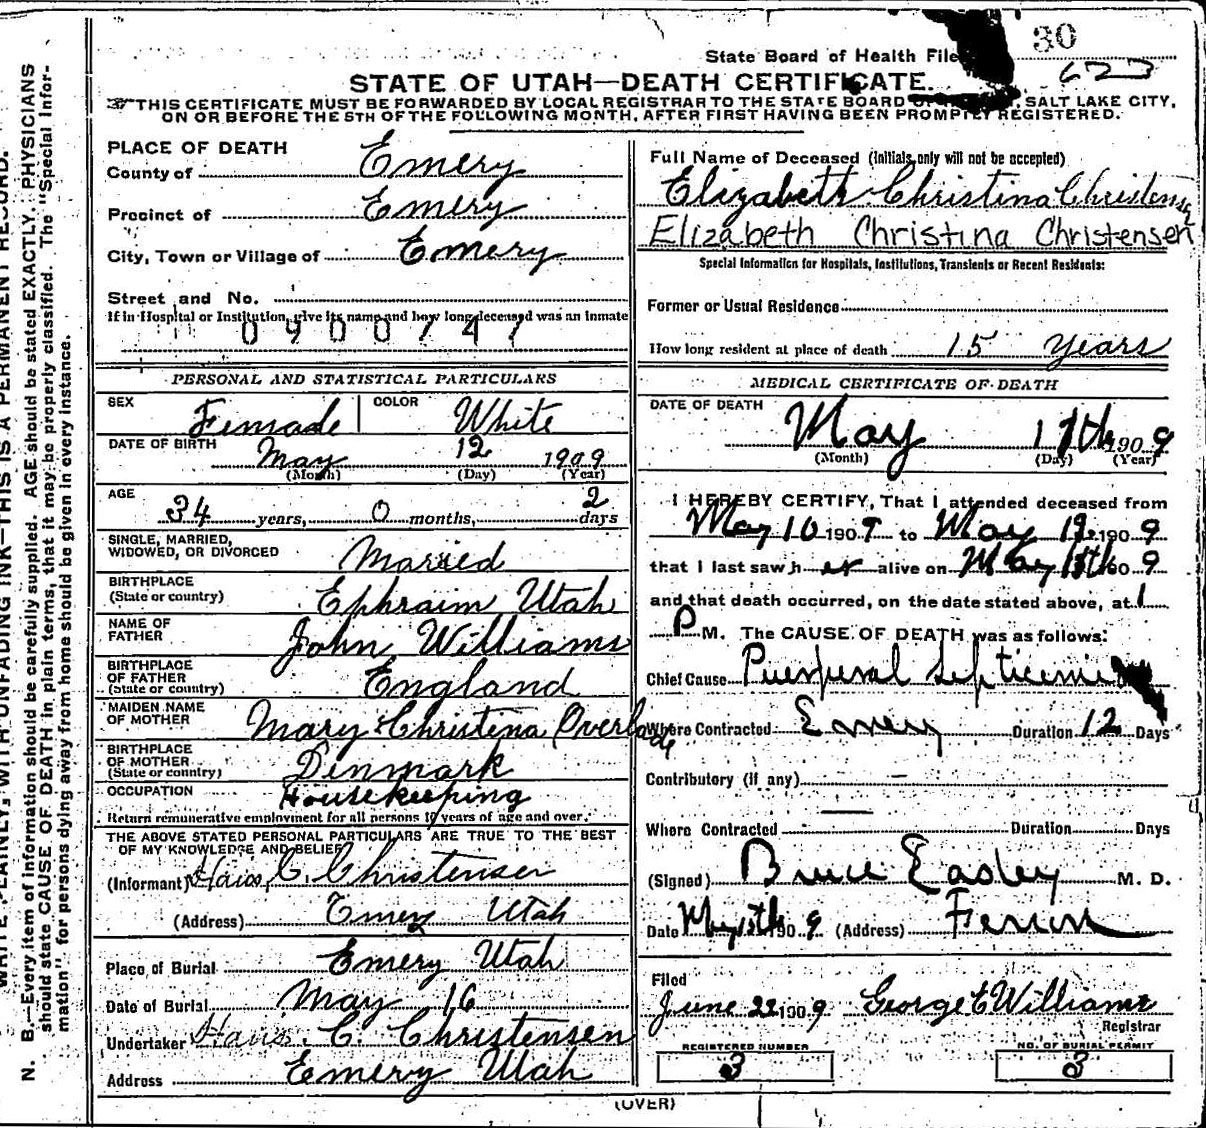 30
State Board of Health File
623
STATE OF UTAH—DEATH CERTIFICATE.
THIS CERTIFICATE MUST BE FORWARDED BY LOCAL REGISTRAR TO THE STATE BOARD SALT LAKE CITY,
ON OR BEFORE THE 5TH OF THE FOLLOWING MONTH, AFTER FIRST HAVING BEEN PROMPTLY REGISTERED.
PLACE OF DEATH
County of Emery
Precinct of Emery
City, Town or Village of Emery
Street and No.
If in Hospital or Institution, give its name and how long deceased was an inmate
0900747
PERSONAL AND STATISTICAL PARTICULARS
SEX Female COLOR White
DATE OF BIRTH May 12 1909
(Month) (Day) (Year)
AGE
34 years, 0 months, 2 days
SINGLE, MARRIED,
WIDOWED, OR DIVORCED Married
BIRTHPLACE
(State or country) Ephraim Utah
NAME OF
FATHER John Williams
BIRTHPLACE
OF FATHER
(State or country) England
MAIDEN NAME
OF MOTHER Mary Christina Overlade
BIRTHPLACE
OF MOTHER
(State or country) Dinmark
OCCUPATION Housekeeping
Return remunerative employment for all persons 10 years of age and over.
THE ABOVE STATED PERSONAL PARTICULARS ARE TRUE TO THE BEST
OF MY KNOWLEDGE AND BELIEF
(Informant) C. Christensen
(Address) Emery Utah
Place of Burial Emery Utah
Date of Burial May 16
Undertaker C. Christensen
Address Emery Utah
Full Name of Deceased (Initials only will not be accepted)
Elizabeth Christina Christensen
Elizabeth Christina Christensen
Special Information for Hospitals, Institutions, Transients or Recent Residents:
Former or Usual Residence
How long resident at place of death 15 years
MEDICAL CERTIFICATE OF DEATH
DATE OF DEATH
May 1909
(Month) (Day) (Year)
I HEREBY CERTIFY, That I attended deceased from
May 10 1909 to May 1909
that I last saw her alive on May 1909
and that death occurred, on the date stated above, at 1
P M. The CAUSE OF DEATH was as follows:
Chief Cause Puerperal Septicemia
Where Contracted Emery Duration 12 Days
Contributory (if any)
Where Contracted Duration Days
(Signed) Bruce Easley M. D.
Date May 1909 (Address) Ferron
Filed
June 22 1909 George E Williams
Registrar
REGISTERED NUMBER
3
NO. OF BURIAL PERMIT
3
(OVER)
WRITE PLAINLY, WITH UNFADING INK—THIS IS A PERMANENT RECORD.
N. B.—Every item of information should be carefully supplied. AGE should be stated EXACTLY. PHYSICIANS
should state CAUSE OF DEATH in plain terms, that it may be properly classified. The "Special Infor-
mation" for persons dying away from home should be given in every instance.